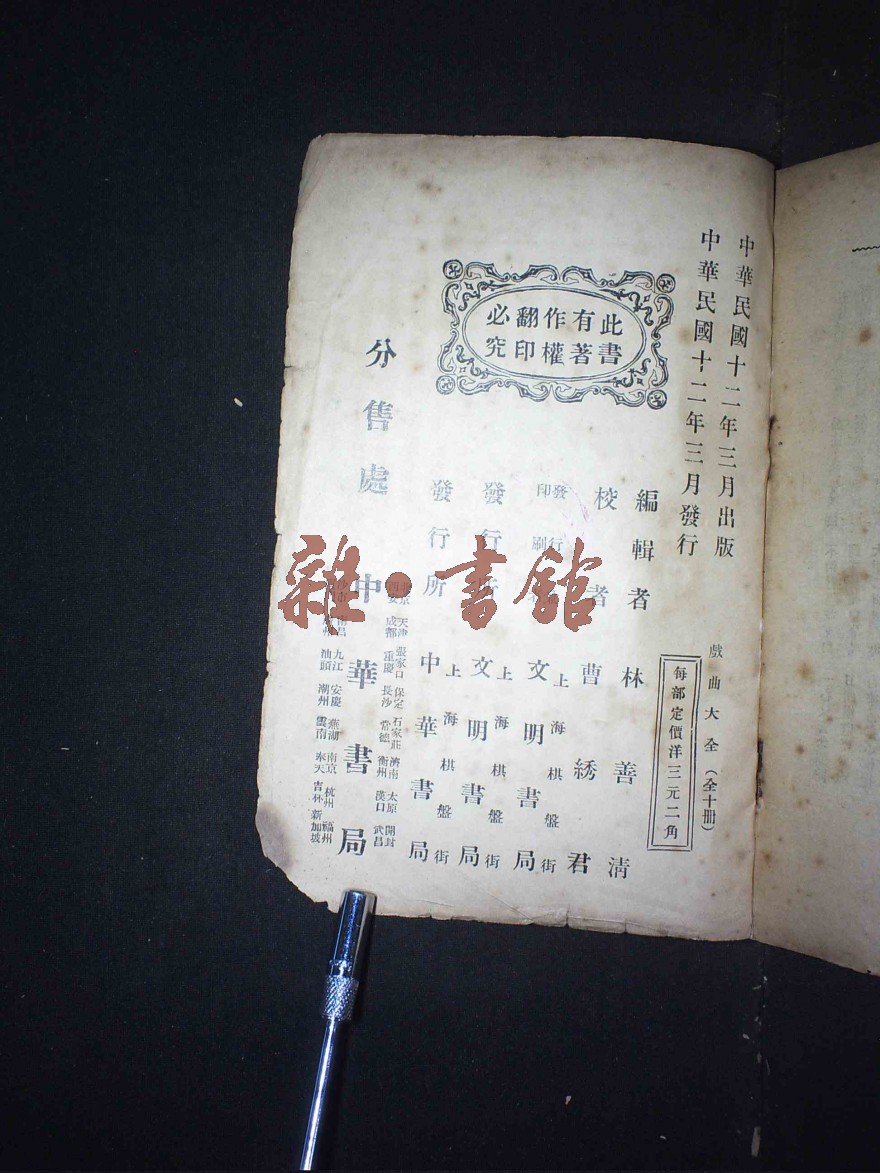 中華民國十二年三月出版
中華民國十二年三月發行
戲曲大全（全十冊）
每部定價洋三元二角
此書有著作權翻印必究
編輯者 林善淸
校者 曹綉君
發行印刷 上海棋盤街 文明書局
發行所 上海棋盤街 文明書局
發行所 上海棋盤街 中華書局
分售處 中華書局
北京 天津 張家口 保定 石家莊 濟南 太原 開封
西安 成都 重慶 長沙 常德 衡州 漢口 武昌
南昌 九江 安慶 蕪湖 南京 杭州 福州
汕頭 潮州 雲南 奉天 吉林 新加坡
雜·書館